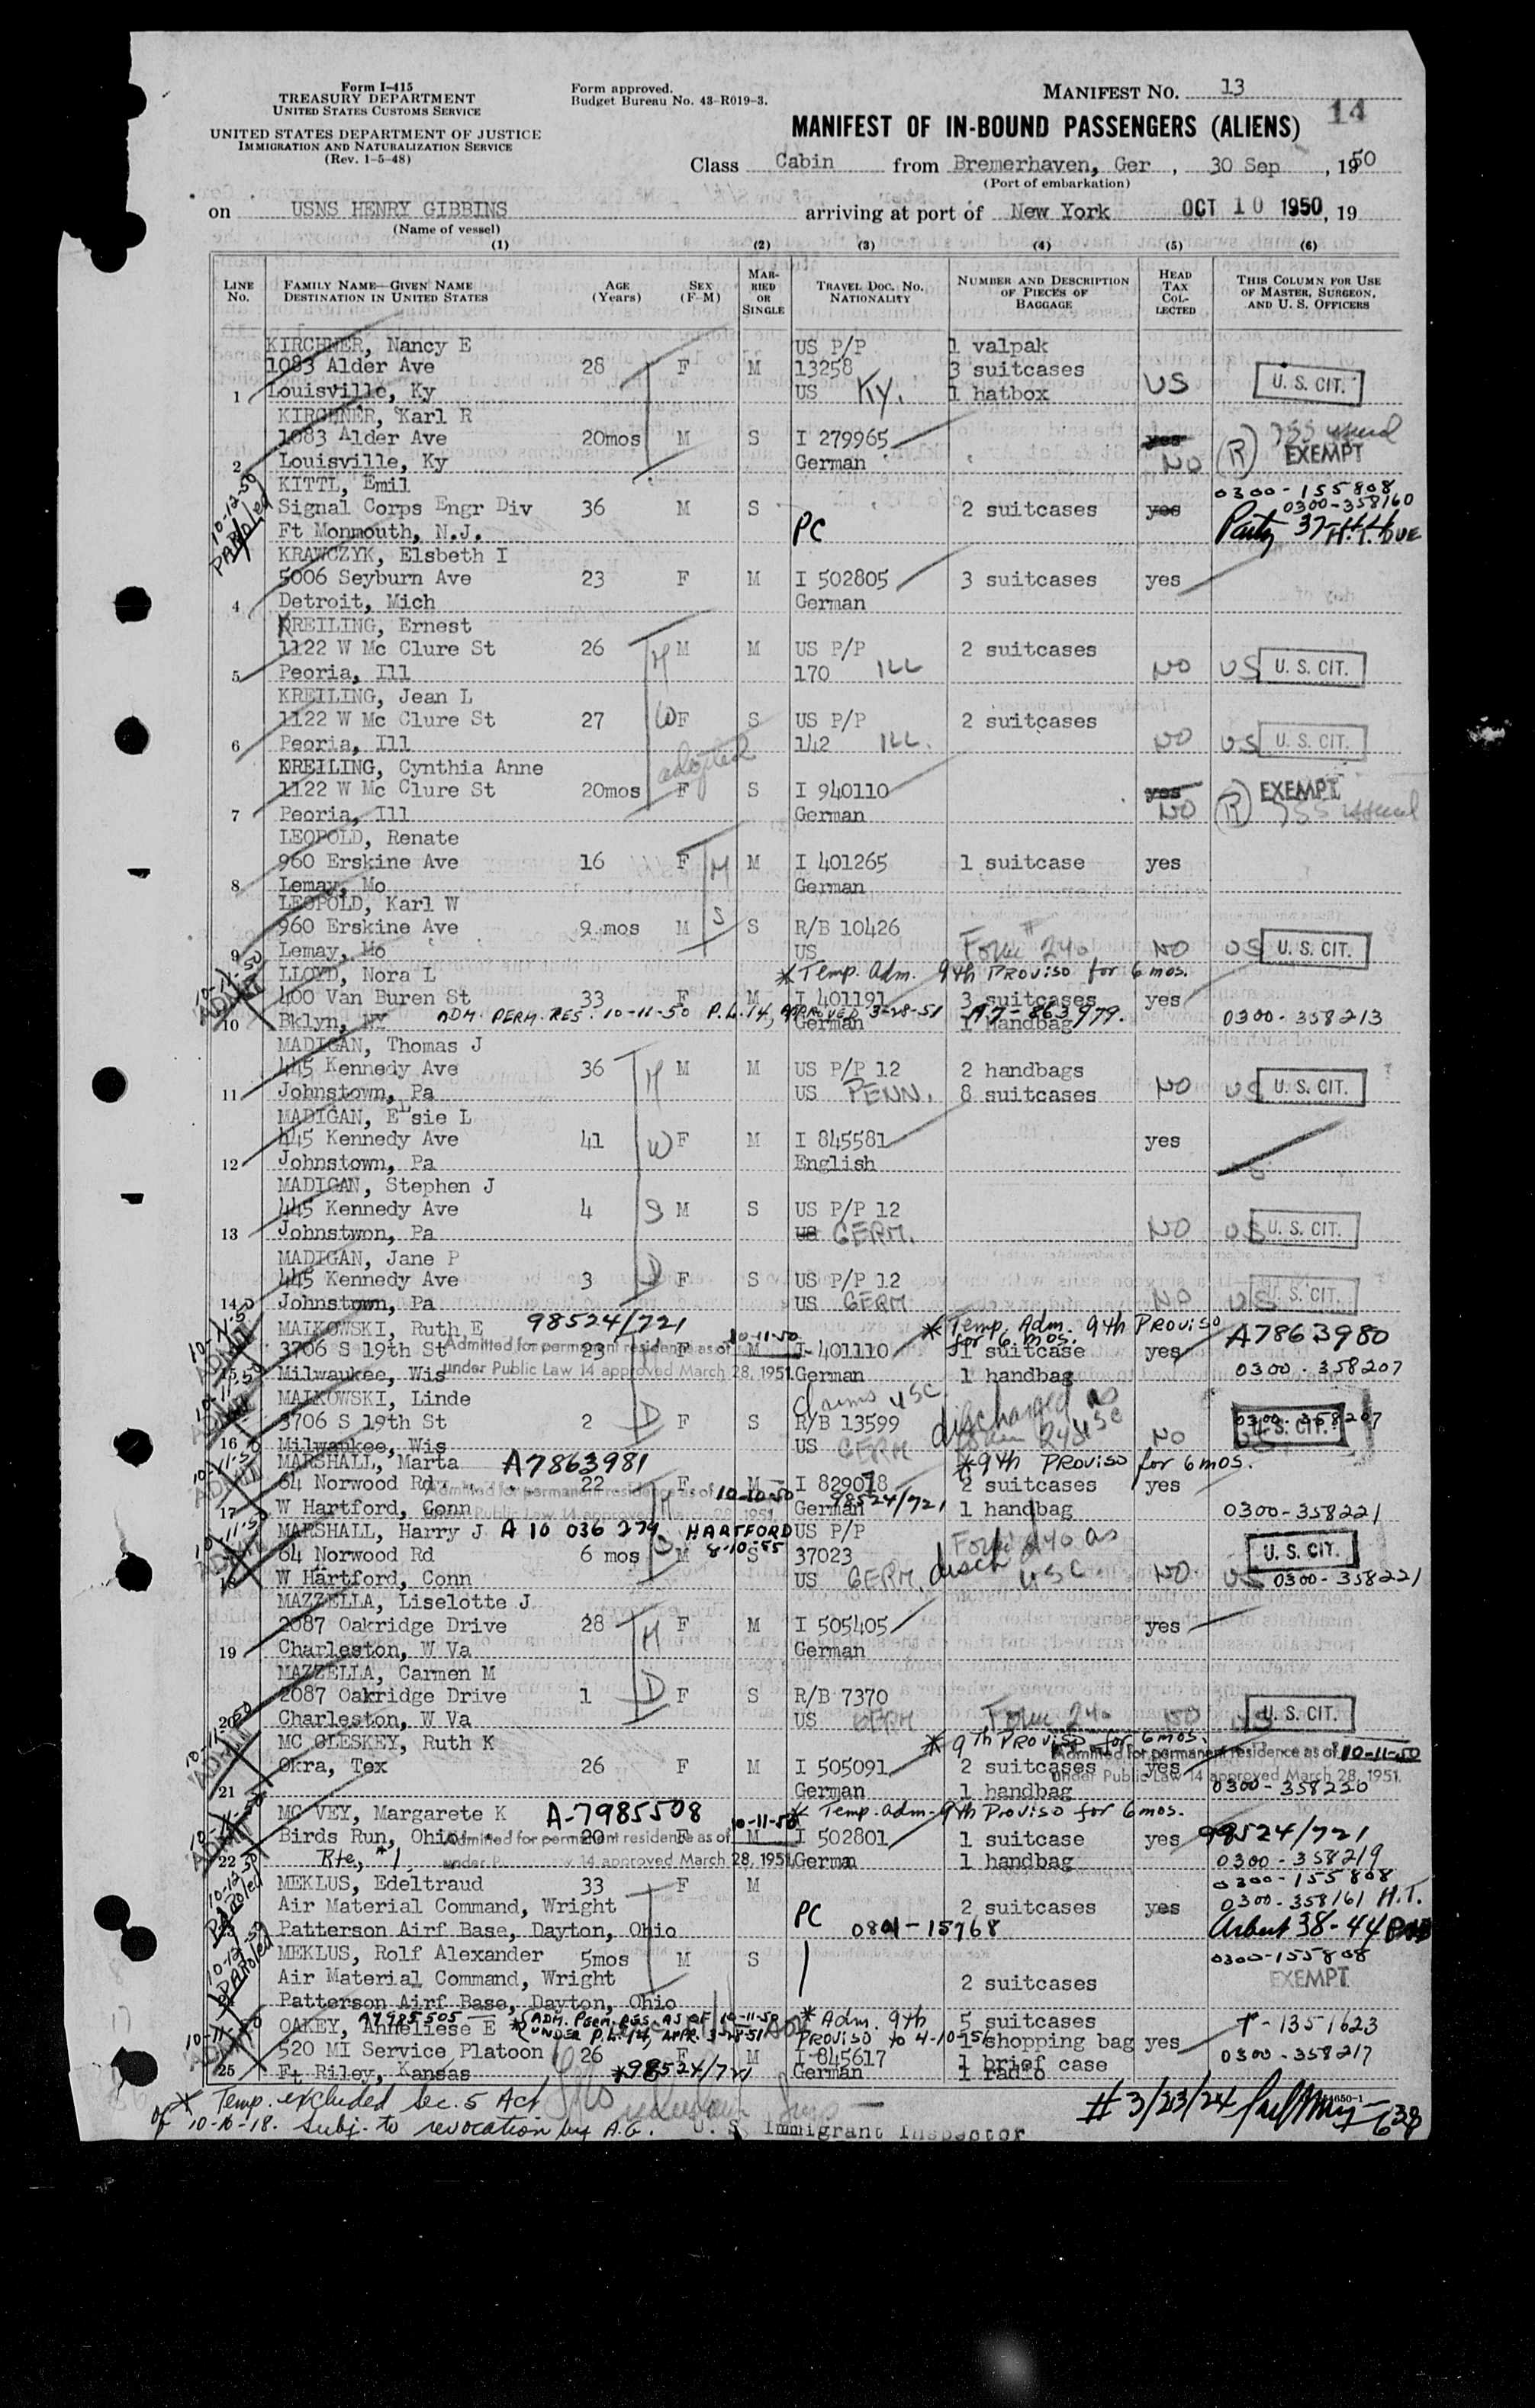 Form I-415
TREASURY DEPARTMENT
UNITED STATES CUSTOMS SERVICE
UNITED STATES DEPARTMENT OF JUSTICE
IMMIGRATION AND NATURALIZATION SERVICE
(Rev. 1-5-48)
Form approved.
Budget Bureau No. 43-R019-3.
MANIFEST NO. 13
14
MANIFEST OF IN-BOUND PASSENGERS (ALIENS)
Class Cabin from Bremerhaven, Ger, 30 Sep, 1950
(Port of embarkation)
on USNS HENRY GIBBINS arriving at port of New York OCT 10 1950, 19
(Name of vessel)
(1) (2) (3) (4) (5) (6)
LINE NO. FAMILY NAME—GIVEN NAME DESTINATION IN UNITED STATES AGE (Years) SEX (F-M) MARRIED OR SINGLE TRAVEL DOC. NO. NATIONALITY NUMBER AND DESCRIPTION OF PIECES OF BAGGAGE HEAD TAX COLLECTED THIS COLUMN FOR USE OF MASTER, SURGEON, AND U. S. OFFICERS
KIRCHNER, Nancy E US P/P 1 valpak
1083 Alder Ave 28 F M 13258 3 suitcases
1 Louisville, Ky US Ky. 1 hatbox US U. S. CIT.
KIRCHNER, Karl R
1083 Alder Ave 20mos M S I 279965 yes
2 Louisville, Ky German NO (R) EXEMPT
KITTL, Emil 0300-155808
Signal Corps Engr Div 36 M S 2 suitcases yes 0300-358160
10-12-50 PAROLED Ft Monmouth, N.J. PC H.T. DUE
KRAWCZYK, Elsbeth I
5006 Seyburn Ave 23 F M I 502805 3 suitcases yes
4 Detroit, Mich German
KREILING, Ernest
1122 W Mc Clure St 26 H M M US P/P 2 suitcases
5 Peoria, Ill 170 ILL NO US U. S. CIT.
KREILING, Jean L
1122 W Mc Clure St 27 W F S US P/P 2 suitcases
6 Peoria, Ill 142 ILL. NO US U. S. CIT.
KREILING, Cynthia Anne adopted
1122 W Mc Clure St 20mos F S I 940110 yes EXEMPT
7 Peoria, Ill German NO (R) issued
LEOPOLD, Renate
960 Erskine Ave 16 F M M I 401265 1 suitcase yes
8 Lemay, Mo German
LEOPOLD, Karl W
960 Erskine Ave 9 mos M S S R/B 10426
9 Lemay, Mo US Form # 240 NO US U. S. CIT.
LLOYD, Nora L * Temp. Adm. 9th Proviso for 6 mos.
400 Van Buren St 33 F M I 401191 3 suitcases yes
10 Bklyn, NY ADM. PERM. RES. 10-11-50 P.L. 14, APPROVED 3-28-51 German 1 handbag A7-863979. 0300-358213
MADIGAN, Thomas J
445 Kennedy Ave 36 H M M US P/P 12 2 handbags
11 Johnstown, Pa US PENN. 8 suitcases NO US U. S. CIT.
MADIGAN, Elsie L
445 Kennedy Ave 41 W F M I 845581 yes
12 Johnstown, Pa English
MADIGAN, Stephen J
445 Kennedy Ave 4 S M S US P/P 12
13 Johnstwon, Pa US GERM. NO US U. S. CIT.
MADIGAN, Jane P
445 Kennedy Ave 3 D F S US P/P 12
14 Johnstown, Pa US GERM NO US U. S. CIT.
MAIKOWSKI, Ruth E 98524/721 * Temp. Adm. 9th Proviso for 6 mos. A7863980
3706 S 19th St Admitted for permanent residence as of 10-11-50 23 F M I 401110 1 suitcase yes
15 Milwaukee, Wis under Public Law 14 approved March 28, 1951. German 1 handbag 0300-358207
MAIKOWSKI, Linde Claims USC
3706 S 19th St 2 D F S R/B 13599 discharged as USC 0300-358207
16 Milwaukee, Wis US GERM Form 240 NO US U. S. CIT.
MARSHALL, Marta A7863981 * 9th Proviso for 6 mos.
64 Norwood Rd 22 F M I 829018 2 suitcases yes
Admitted for permanent residence as of 10-10-50
17 W Hartford, Conn German 98524/721 1 handbag 0300-358221
MARSHALL, Harry J A 10 036 279 HARTFORD US P/P
64 Norwood Rd 6 mos S M 8-10-55 S 37023 Form 240 as U. S. CIT.
18 W Hartford, Conn US GERM. disch USC NO US 0300-358221
MAZZELLA, Liselotte J
2087 Oakridge Drive 28 M F M I 505405 yes
19 Charleston, W Va German
MAZZELLA, Carmen M
2087 Oakridge Drive 1 D F S R/B 7370
20 Charleston, W Va US GERM Form 240 NO US U. S. CIT.
MC CLESKEY, Ruth K * 9th Proviso for 6 mos.
Admitted for permanent residence as of 10-11-50
Okra, Tex 26 F M I 505091 2 suitcases yes under Public Law 14 approved March 28, 1951.
21 German 1 handbag 0300-358220
MC VEY, Margarete K A-7985508 * Temp. adm- 9th Proviso for 6 mos.
Birds Run, Ohio Admitted for permanent residence as of 10-11-50 20 F M I 502801 1 suitcase yes 98524/721
22 Rte, #1 under P 14 approved March 28, 1951. German 1 handbag 0300-358219
MEKLUS, Edeltraud 33 F M 0300-155808
Air Material Command, Wright 2 suitcases yes 0300-358161 H.T.
10-12-50 PAROLED Patterson Airf Base, Dayton, Ohio PC 0801-15768 38-44
MEKLUS, Rolf Alexander 5mos M S 0300-155808
Air Material Command, Wright 2 suitcases EXEMPT
10-12-50 PAROLED Patterson Airf Base, Dayton, Ohio
A7985505
OAKEY, Anneliese E * ADM. PERM. RES. AS OF 10-11-50 UNDER P.L. 14, APPR. 3-28-51 * Adm. 9th Proviso to 4-10-51 5 suitcases T-1351623
520 MI Service Platoon 26 F M I 845617 1 shopping bag yes 0300-358217
1 brief case
25 Ft Riley, Kansas *98524/721 German 1 radio
* Temp. excluded Sec. 5 Act
of 10-16-18. Subj. to revocation by A.G.
U. S. Immigrant Inspector
# 3/23/24